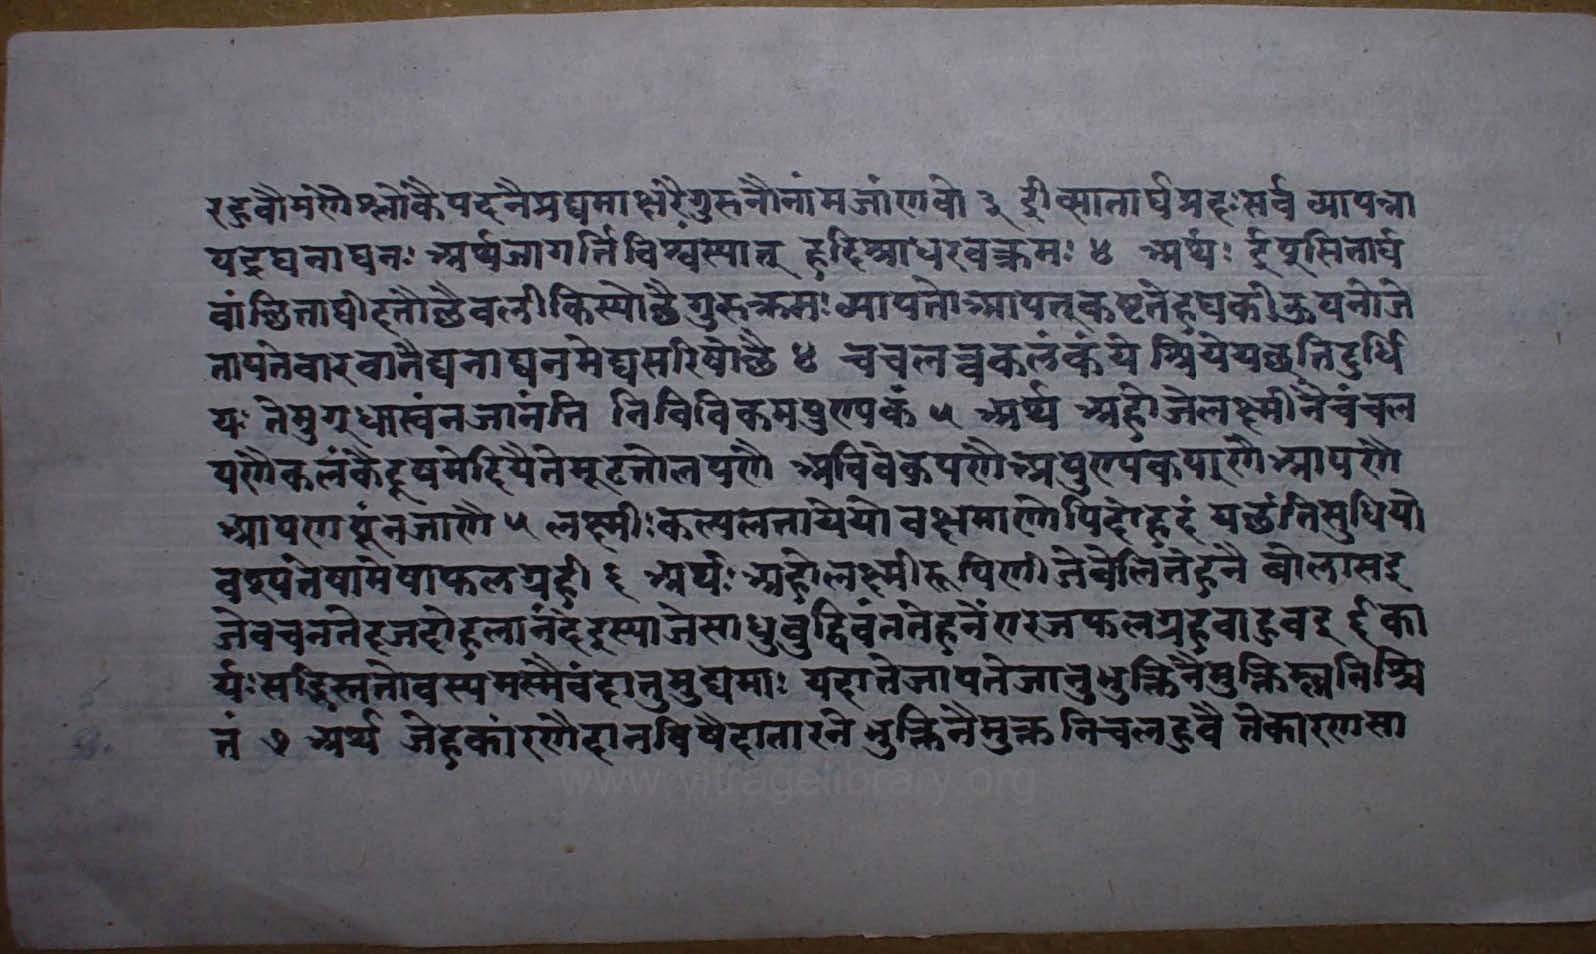 रहुवौमणेश्लोकैपदनैप्रद्यमाक्षरैगुरुनौनांमजांणवो ३ द्रीप्सातार्घप्रहःसर्वव्यापन्ना
पद्रघनाघनः अर्थजागर्त्तिविश्वंस्यात् हृदिश्राधरवक्रमः ४ अर्थः ईप्सितार्घ
वांछितार्घीहतौछैवलीकिस्योछैगुरुक्रमः व्यापतोआपत्कष्टतेहघकीऊपनोजे
तापतेवारवानैघनाघनमेघसरिषोछै ४ चचलत्वकलंकंये श्रियेयछंतिदुर्धि
यः तेमुग्धास्वंनजानंति निविविकमपुण्यकं ५ अर्थ अहोजेलक्ष्मीनैचंचल
पणैकलंकैदूषमेदियैतेमूढनोलपणै अविवेकपणैअपुण्यकपणैआपणै
आपणपूंनजाणै ५ लक्ष्मीःकल्पलतायेयो वक्षमाणेपिदोहदं यछंतिसुधियो
वश्पंतेषामेषाफलग्रही ६ अर्थः अहोलक्ष्मीरूपिणीजेवेलितेहनै बोलासइ
जेवचनतेहजदोहलानंदेइस्याजेसाधुबुद्धिवंततेहनेंणरजफलग्रहवाहुवइ ६ का
र्यःसद्भिस्ततोवस्यमस्मैवंदातुमुद्यमाः यदातेजापतेजानुभुक्तिनैमुक्तिस्त्वनिश्चि
तं ७ अर्थ जेहकांरणैदानविषैदातारने भुक्तिनैमुक्तनिचलहुवै तेकारणसा
www.vitragelibrary.org